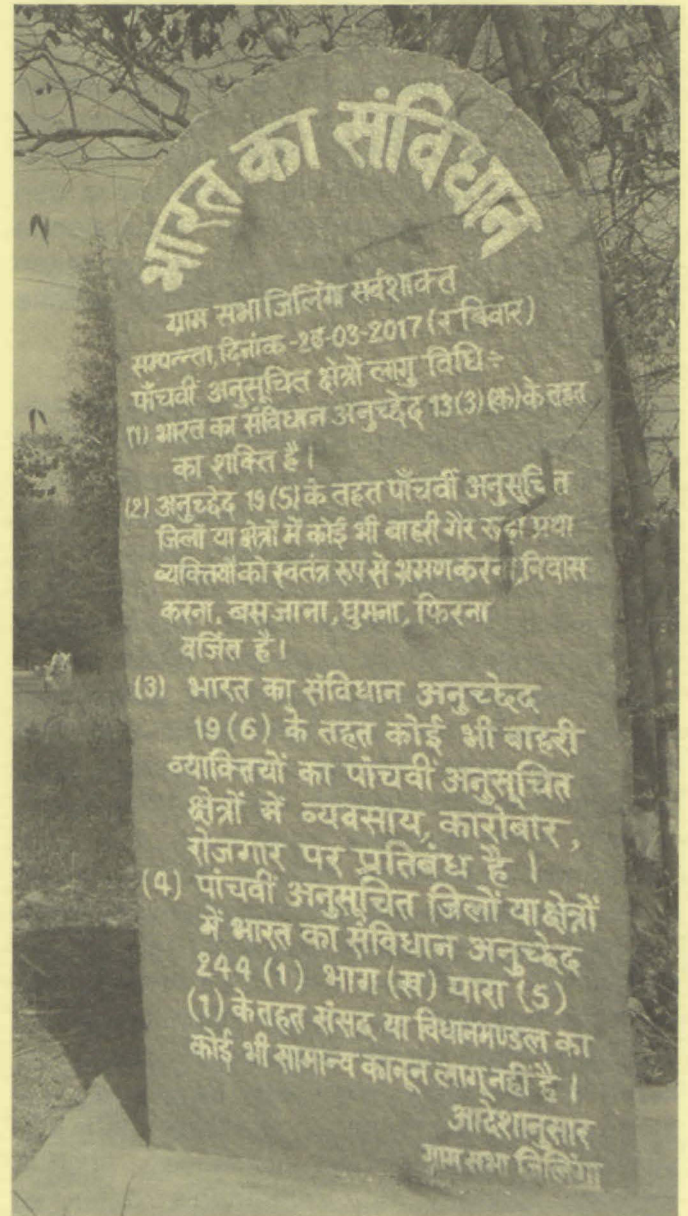 भारत का संविधान
ग्राम सभा जिलिंगा सर्वशाक्त
सम्पन्नता, दिनांक -26-03-2017 (रविवार)
पाँचवीं अनुसूचित क्षेत्रों लागु विधि ÷
(1) भारत का संविधान अनुच्छेद 13(3)(क) के तहत
का शक्ति है।
(2) अनुच्छेद 19(5) के तहत पाँचवीं अनुसूचित
जिलों या क्षेत्रों में कोई भी बाहरी गैर रूढ़ी प्रथा
व्यक्तियों को स्वतंत्र रुप से भ्रमण करना, निवास
करना, बस जाना, घुमना, फिरना
वर्जित है।
(3) भारत का संविधान अनुच्छेद
19 (6) के तहत कोई भी बाहरी
व्याक्तियों का पांचवीं अनुसूचित
क्षेत्रों में व्यवसाय, कारोबार,
रोजगार पर प्रतिबंध है।
(4) पांचवीं अनुसूचित जिलों या क्षेत्रों
में भारत का संविधान अनुच्छेद
244 (1) भाग (ख) पारा (5)
(1) के तहत संसद या विधानमण्डल का
कोई भी सामान्य कानून लागू नहीं है।
आदेशानुसार
ग्राम सभा जिलिंगा